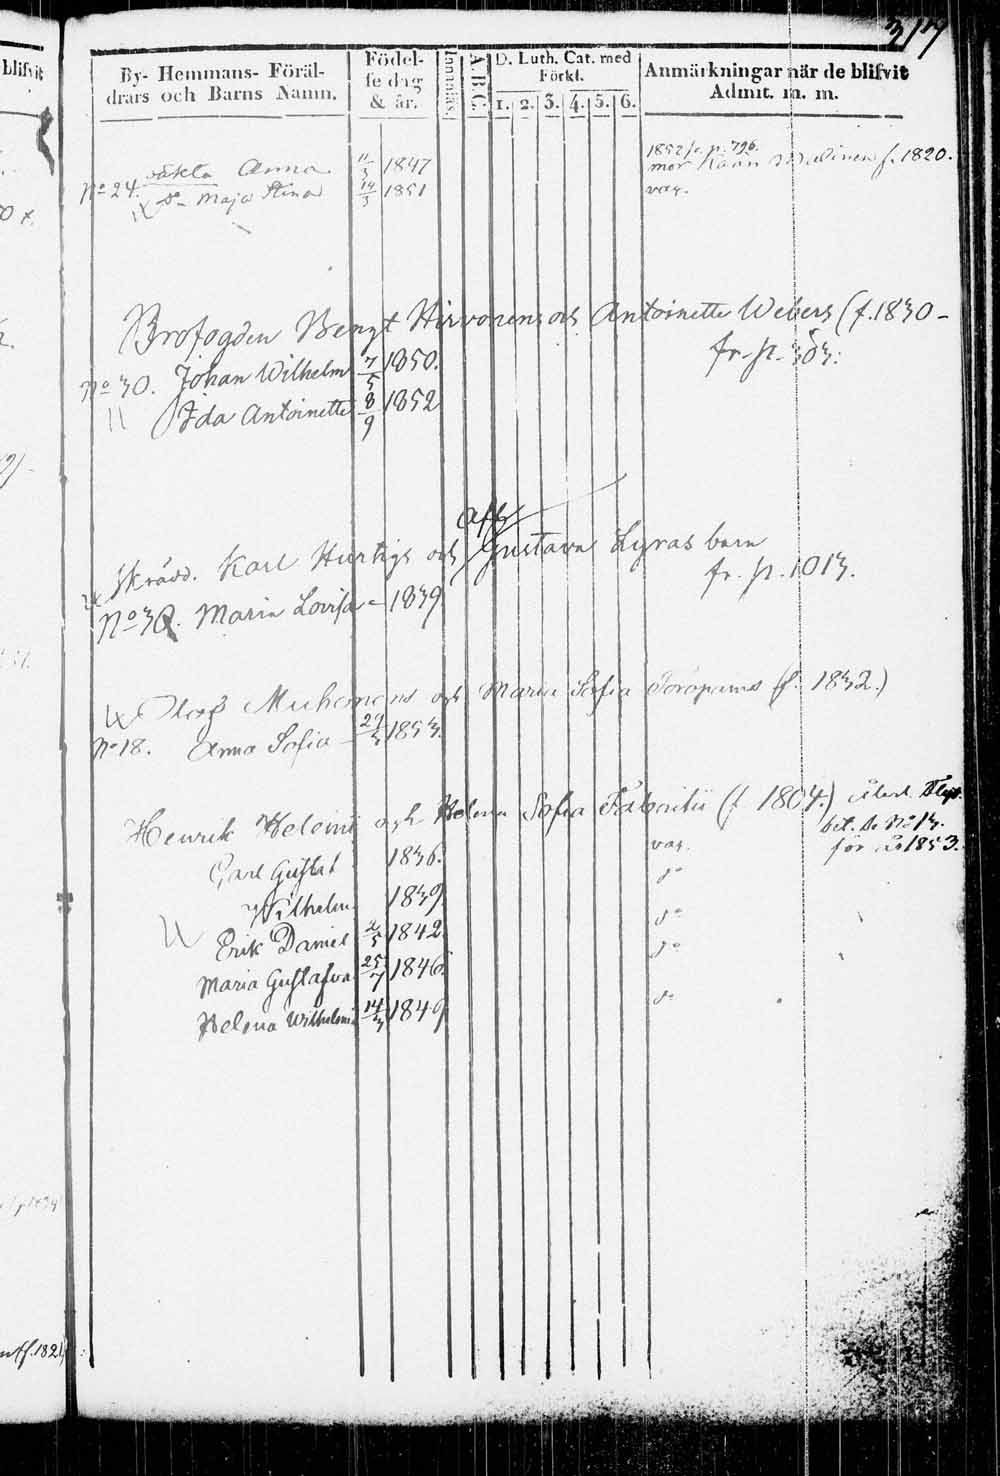 317
By- Hemmans- Föräl-
drars och Barns Namn.
Födel-
se dag
& år.
Innanläs.
A B C.
D. Luth. Cat. med
Förkl.
1. 2. 3. 4. 5. 6.
Anmärkningar när de blifvit
Admit. m. m.
blifvit
oäkta Anna 11/3 1847
1852 fr. p. 796.
mor Kaan f. 1820.
No 24. do Maja Stina 14/3 1851 vac.
Brofogden Bengt Hirvonens och Antoinette Webers (f. 1830 -
fr. p. 303:
No 30. Johan Wilhelm 7/5 1850.
Ida Antoinette 8/9 1852
Skrädd. Karl Hurtigs och Gustava Lyras barn
fr. p. 1013.
No 30. Maria Lovisa - 1839
Olof Muhonens och Maria Sofia Toropains (f. 1832.)
No 18. Anna Sofia 1853.
Henrik Helenii och Helena Sofia Fabritii (f 1804.)
bet. No 13.
för år 1853.
Carl Gustaf 1836. vac.
Wilhelm 1839 do
Erik Daniel 2/5 1842 do
Maria Gustafva 25/7 1846. do
Helena Wilhelmi 14/3 1849 do
f. 1821